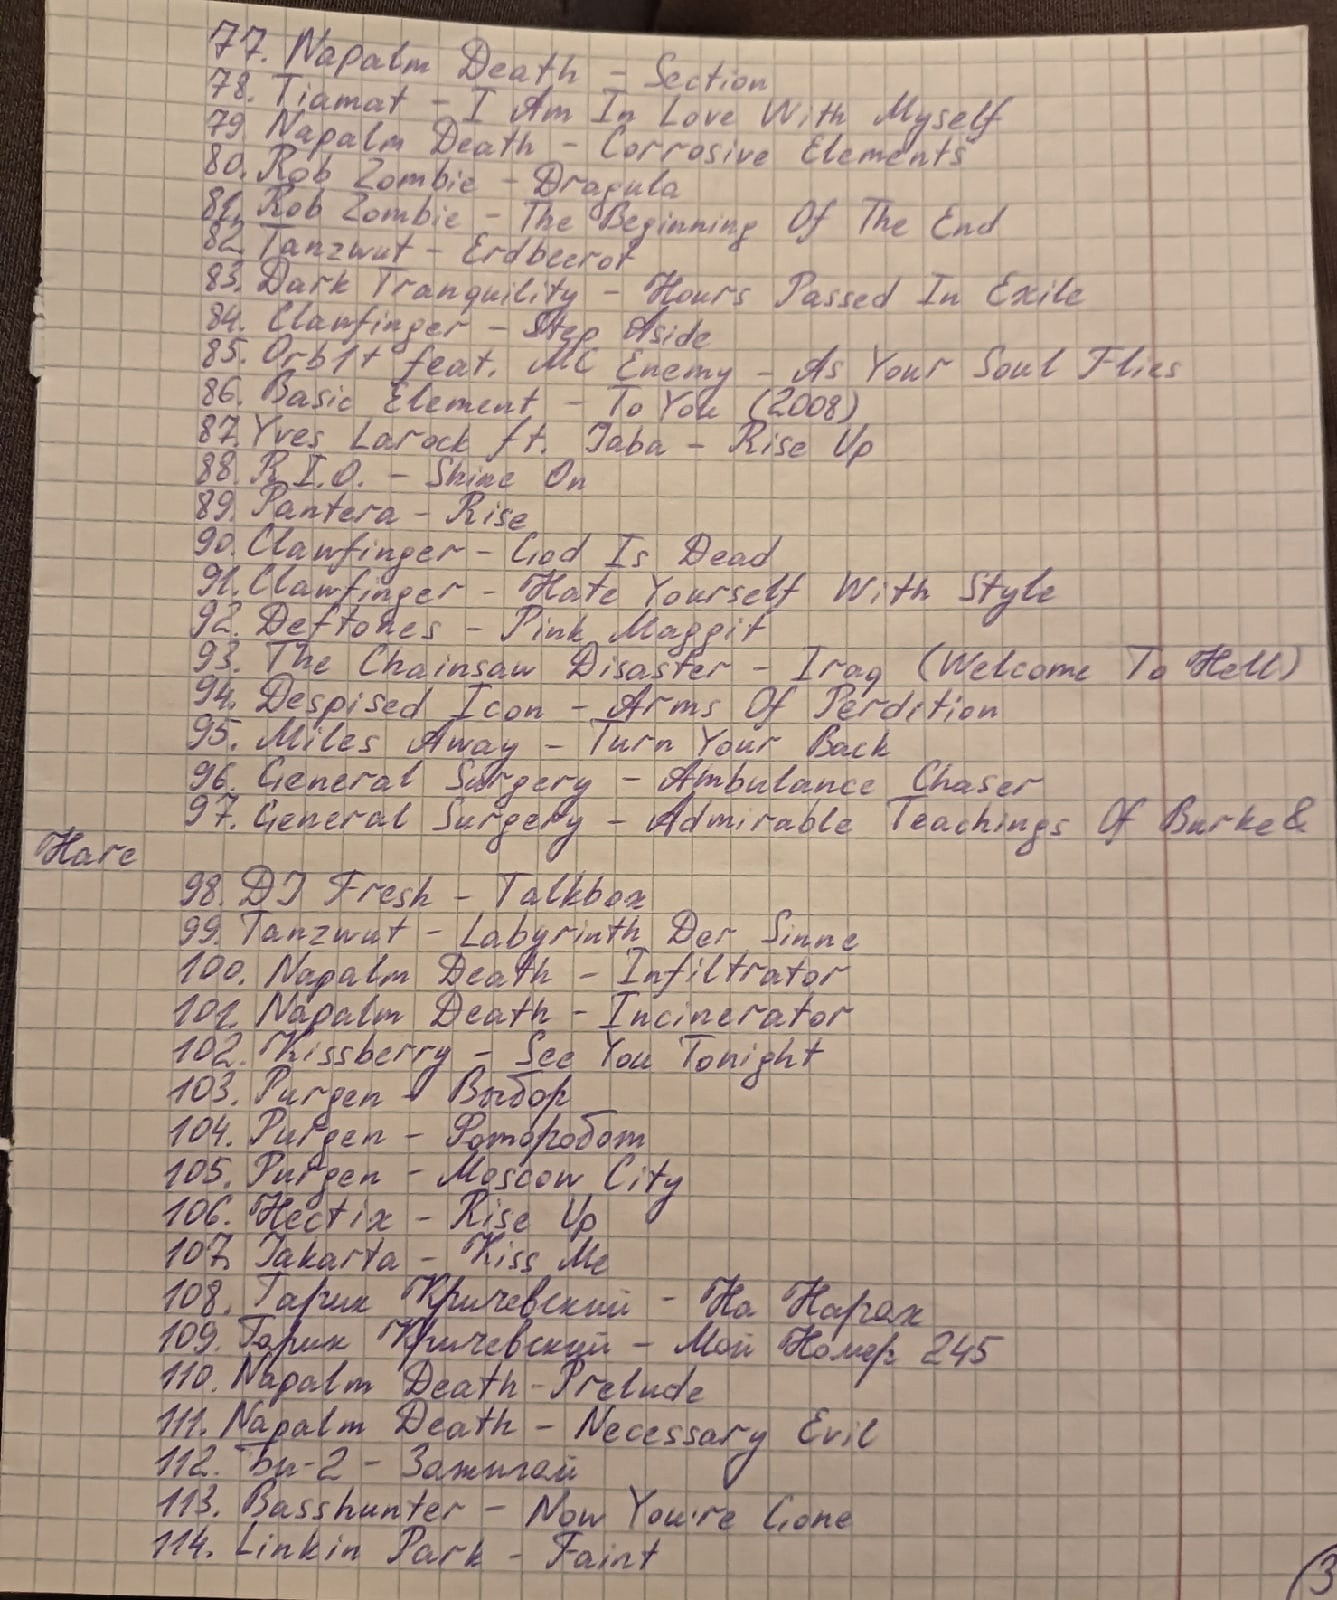 77. Napalm Death - Section
78. Tiamat - I Am In Love With Myself
79. Napalm Death - Corrosive Elements
80. Rob Zombie - Dragula
81. Rob Zombie - The Beginning Of The End
82. Tanzwut - Erdbeerot
83. Dark Tranquility - Hours Passed In Exile
84. Clawfinger - Step Aside
85. Orb1t feat. MC Enemy - As Your Soul Flies
86. Basic Element - To You (2008)
87. Yves Larock ft. Jaba - Rise Up
88. R.I.O. - Shine On
89. Pantera - Rise
90. Clawfinger - God Is Dead
91. Clawfinger - Hate Yourself With Style
92. Deftones - Pink Maggit
93. The Chainsaw Disaster - Iraq (Welcome To Hell)
94. Despised Icon - Arms Of Perdition
95. Miles Away - Turn Your Back
96. General Surgery - Ambulance Chaser
97. General Surgery - Admirable Teachings Of Burke &
Hare
98. DJ Fresh - Talkbox
99. Tanzwut - Labyrinth Der Sinne
100. Napalm Death - Infiltrator
101. Napalm Death - Incinerator
102. Kissberry - See You Tonight
103. Purgen - Выбор
104. Purgen - Роторобот
105. Purgen - Moscow City
106. Hectix - Rise Up
107. Jakarta - Kiss Me
108. Гарик Кричевский - На Нарах
109. Гарик Кричевский - Мой Номер 245
110. Napalm Death - Prelude
111. Napalm Death - Necessary Evil
112. Би-2 - Зажигай
113. Basshunter - Now You're Gone
114. Linkin Park - Faint
3